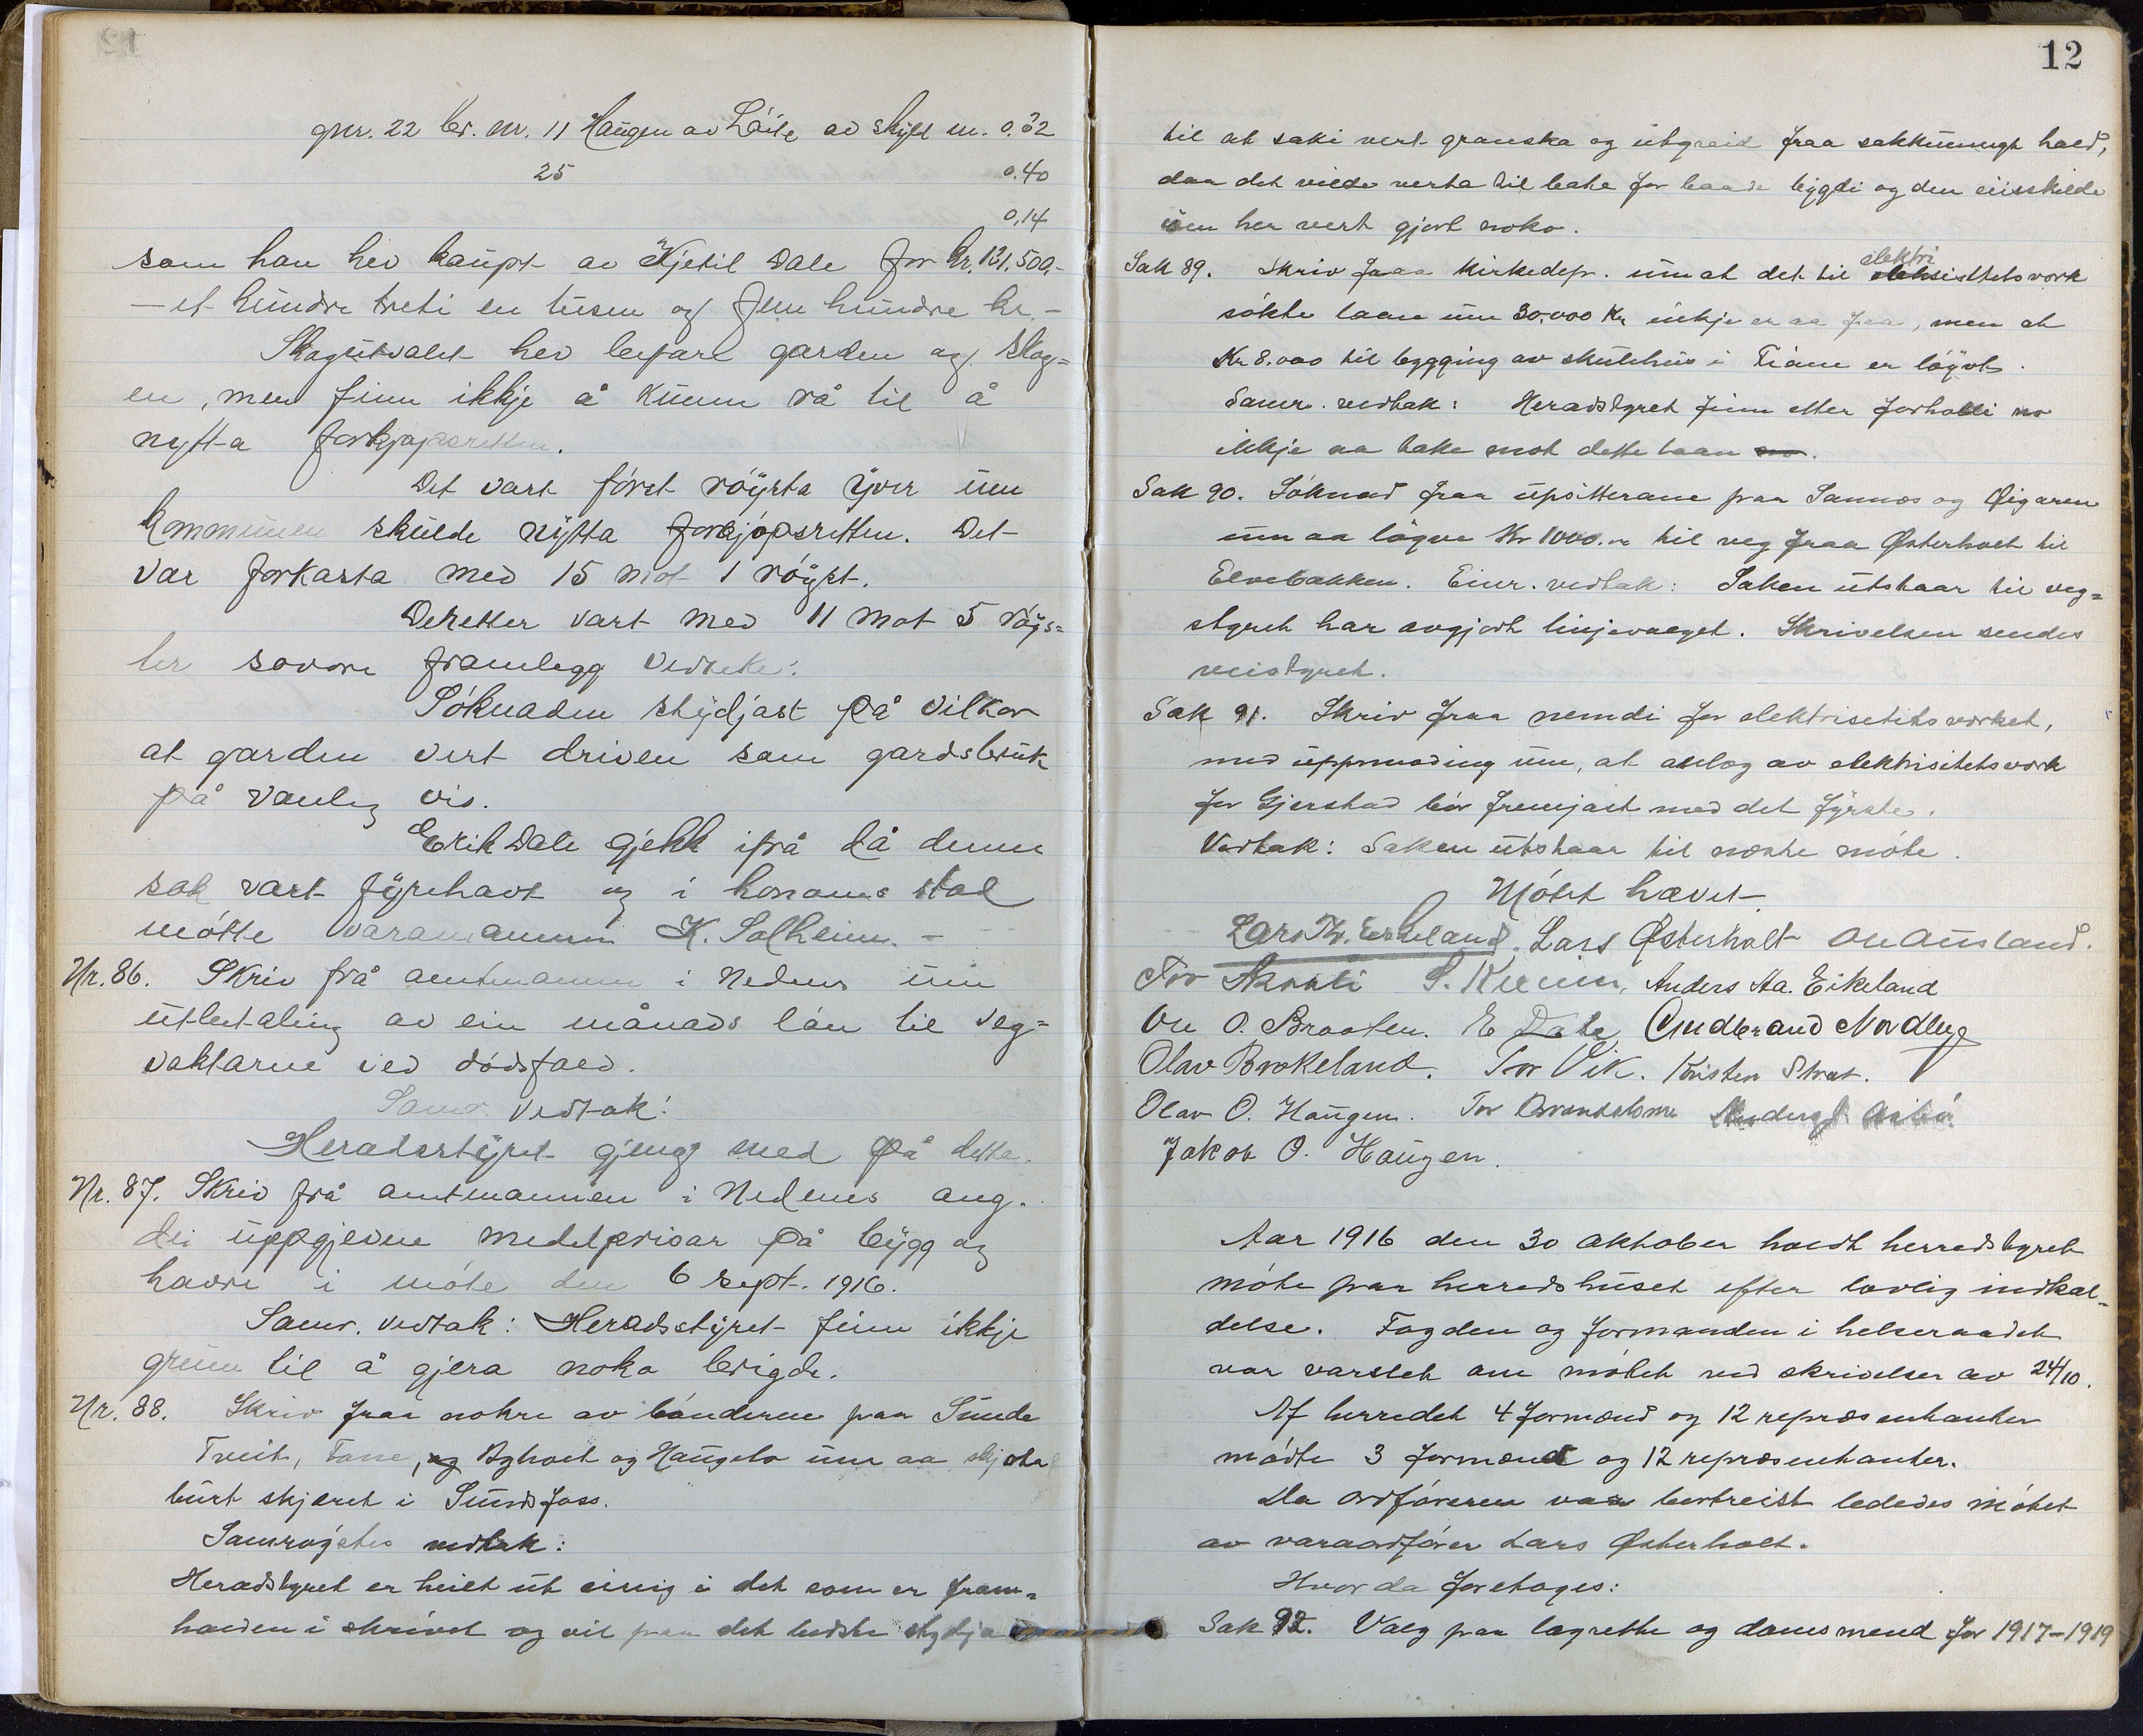 gnr. 22 br. nr. 11 Haugen av Löite av skyld m. 0.32
25 0.40
0,14
som han hev kaupt av Kjetil Dale for kr. 131.500,-
- et hundre treti en tusen og fem hundre kr. -
Skogutvalet hev befart garden og skog=
en, men finn ikkje å kunne rå til å
nytta forkjøpsretten.
Det vart först röysta yver um
kommunen skulde nytta forkjöpsretten. Det
var forkasta med 15 mot 1 röyst.
Deretter vart med 11 mot 5 röys=
ter sovore framlegg vedteke:
Söknaden stydjast på vilkor
at garden vert driven som gardsbruk
på vanleg vis.
Erik Dale gjekk ifrå då denne
sak vart fyrehavt og i honoms stad
mötte varamannen K. Solheim. -
Nr. 86. Skriv frå amtmannen i Nedenes um
utbetaling av ein månads lön til veg=
vaktarne ved dödsfald.
Samr. vedtak:
Heradsstyret gjeng med på dette.
Nr. 87. Skriv frå amtmannen i Nedenes ang.
dei uppgjevne medelprisar på bygg og
havre i möte den 6 sept. 1916.
Samr. vedtak: Heradsstyret finn ikkje
grunn til å gjera noko brigde.
Nr. 88. Skriv fraa nokre av bönderne paa Sunde
Tveit, Tane, og Ryholt og Haugelo um aa skjota
burt skjæret i Sundsfoss.
Samröystes vedtak:
Heradstyret er heilt ut einig i det som er fram=
halden i skrivet og vil paa det bedste stydja
12
til at saki vert granska og utgreid fraa sakkunnigt hald,
daa det vilde verta til bate for baade bygdi og den einskilde
um her vert gjort noko.
Sak 89. Skriv fraa Kirkedep. um at det til elektrisitetsverk
sökte laan um 30.000 Kr inkje er aa faa, men at
Kr 8.000 til bygging av skulehus i Fiane er löyvt.
Samr. vedtak: Heradstyret finn etter forholdi no
ikkje aa take mot dette laan no.
Sak 90. Söknad fraa upsitterane paa Sannes og Øigaren
um aa löyve Kr 1000.00 til veg fraa Østerholt til
Elvebakken. Einr. vedtak: Saken utstaar til veg=
styret har avgjort linjevalget. Skrivelsen sendes
veistyret.
Sak 91. Skriv fraa nemdi for elektrisitetsverket,
med uppmoding um, at anlæg av elektrisitetsverk
for Gjerstad bör fremjast med det fyrste.
Vedtak: Saken utstaar til næste möte.
Mötet hævet.
Lars Th. Eskeland. Lars Østerholt Ole Ausland.
Tor Skorli S. Anders Aa. Eikeland
Ole O. Braaten. E Dale Gudbrand Nordbye
Olav Brokeland. Tor Vik. Kristen Strat.
Olav O. Haugen. Tor
Jakob O. Haugen.
Aar 1916 den 30 oktober holdt herredstyret
möte paa herredshuset efter lovlig indkal-
delse. Fogden og formanden i helseraadet
var varslet om mötet ved skrivelser av 24/10.
Af herredet 4 formænd og 12 repræsentanter
mödte 3 formænd og 12 repræsentanter.
Da ordföreren var bortreist lededes mötet
av varaordförer Lars Østerholt.
Hvor da foretoges:
Sak 92. Valg paa lagrette og domsmend for 1917-1919